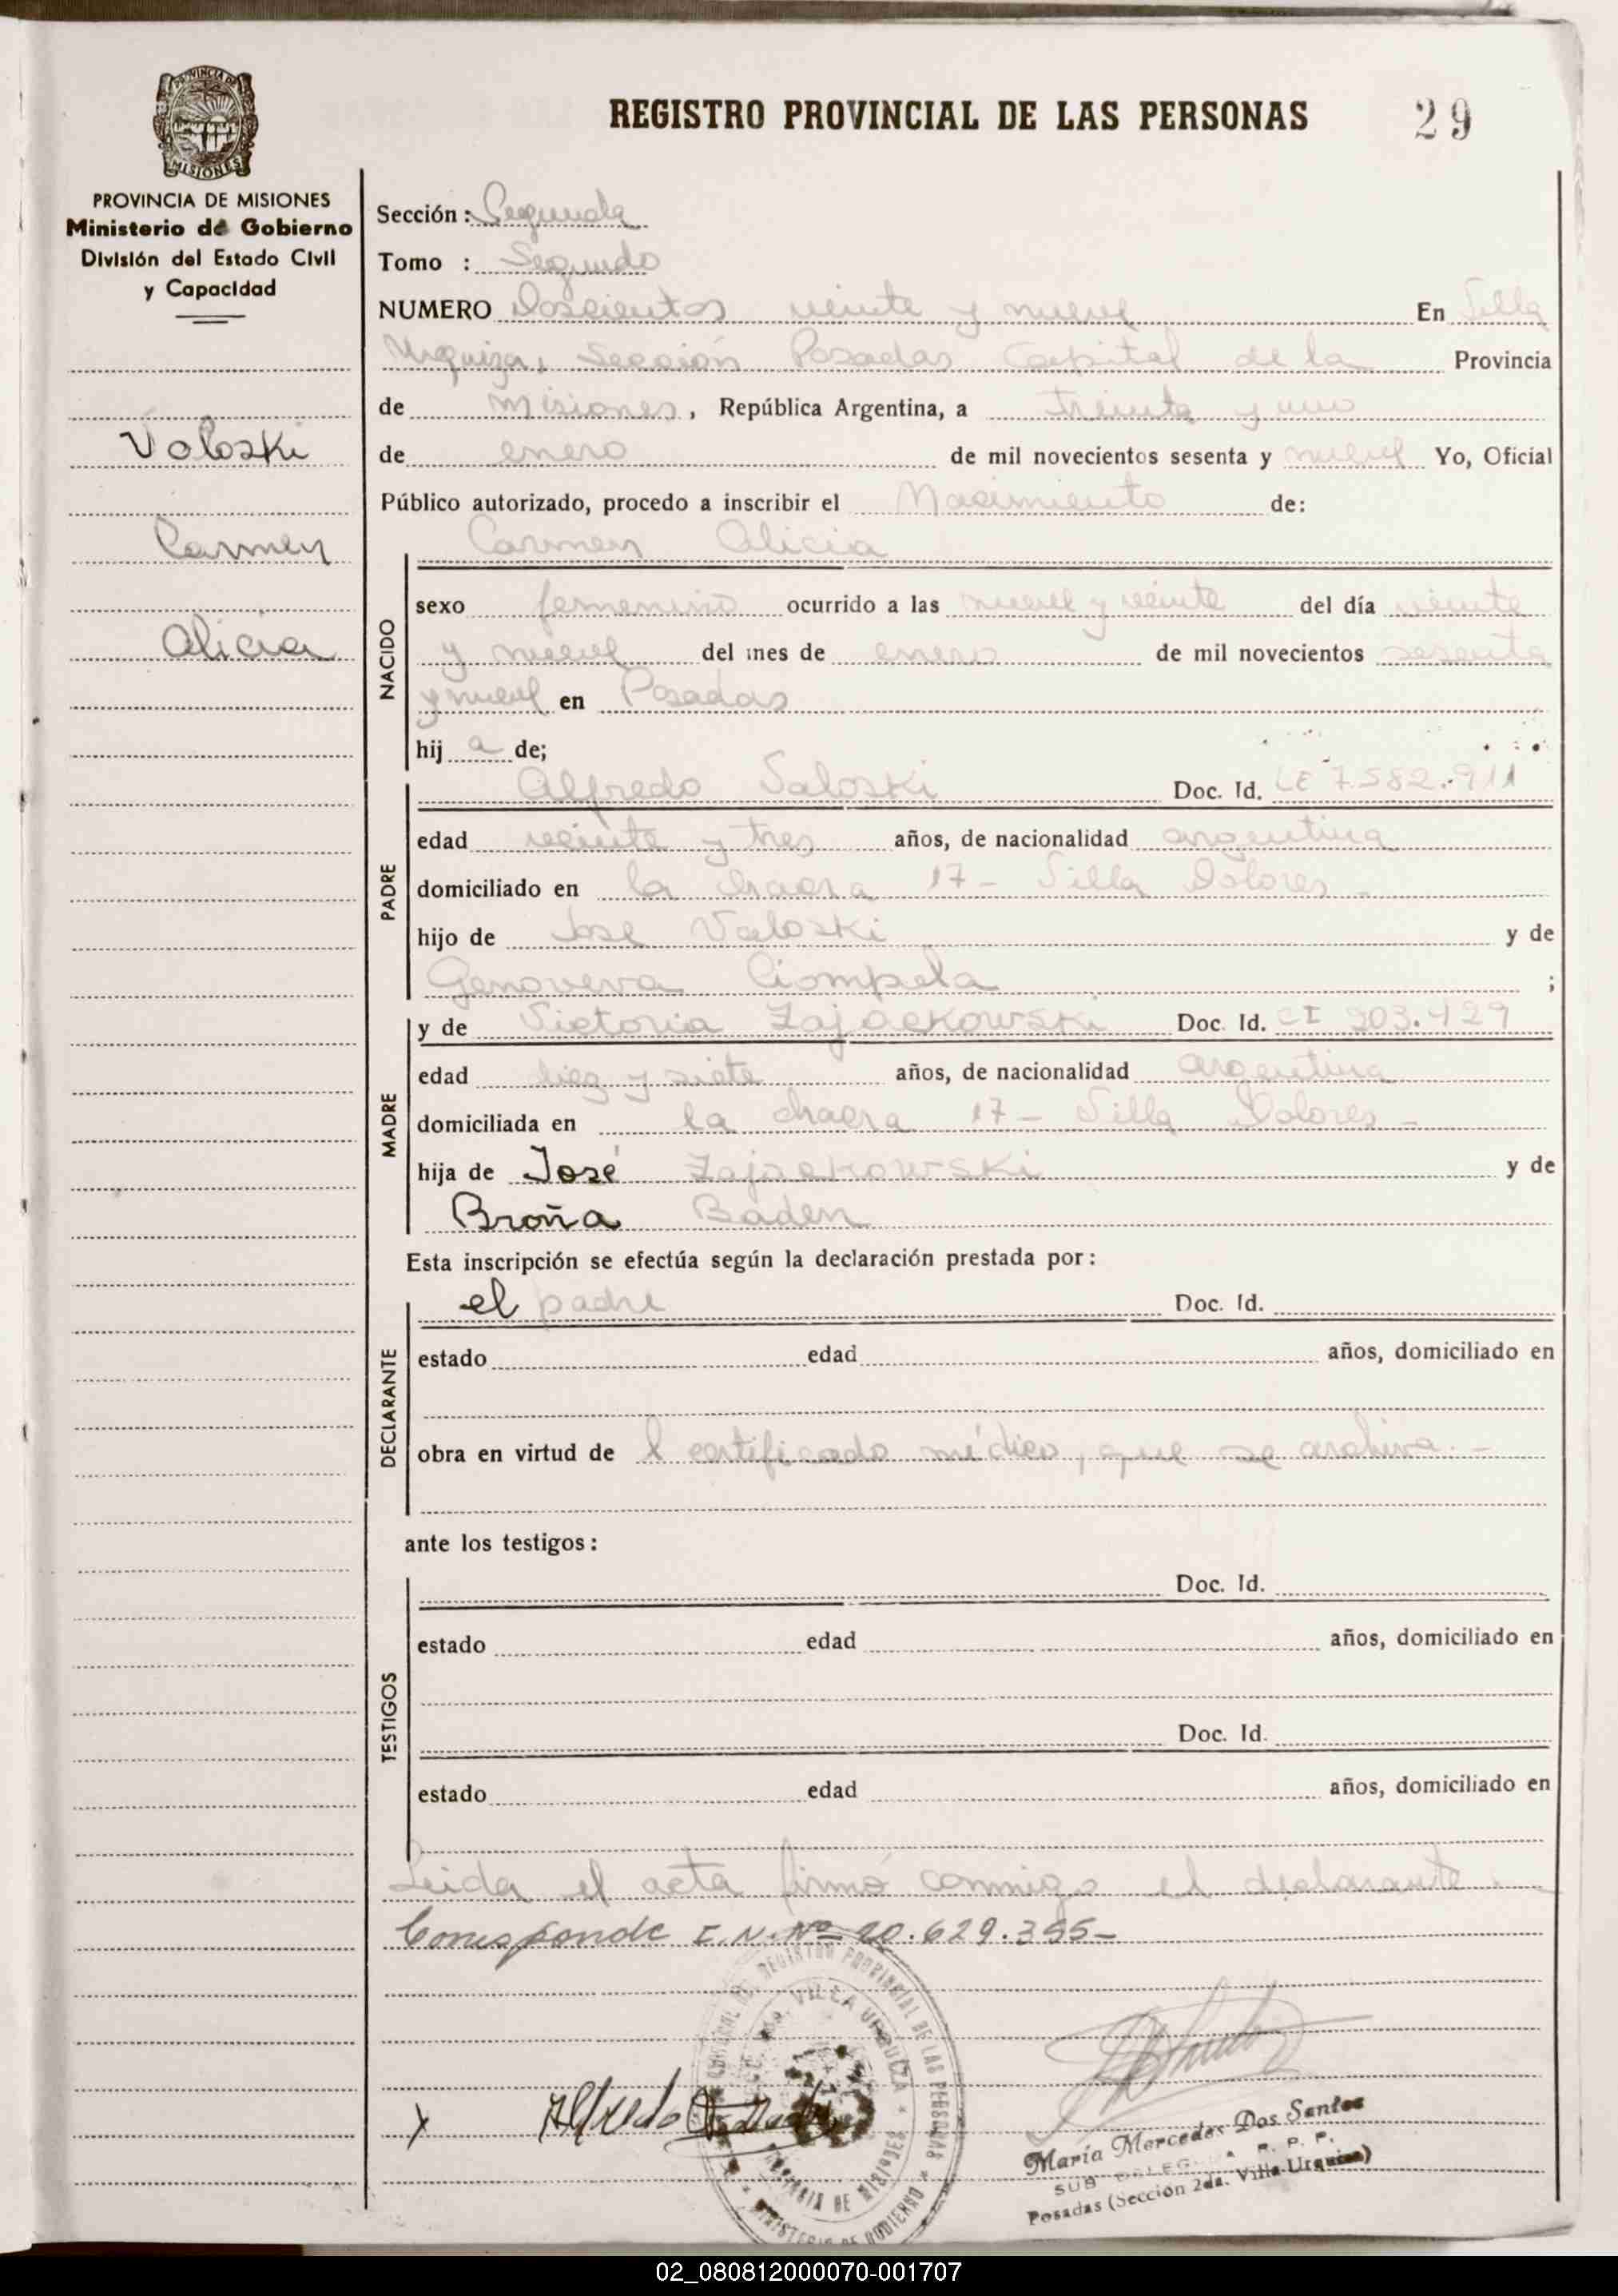 REGISTRO PROVINCIAL DE LAS PERSONAS
29
PROVINCIA DE MISIONES
MISIONES
PROVINCIA DE MISIONES
Ministerio de Gobierno
División del Estado Civil
y Capacidad
Valoski
Carmen
Alicia
Sección : Segunda
Tomo : Segundo
NUMERO Doscientos veinte y nueve En Villa
Urquiza, Sección Posadas Capital de la Provincia
de Misiones, República Argentina, a treinta y uno
de enero de mil novecientos sesenta y nueve Yo, Oficial
Público autorizado, procedo a inscribir el Nacimiento de:
NACIDO
Carmen Alicia
sexo femenino ocurrido a las nueve y veinte del día veinte
y nueve del mes de enero de mil novecientos sesenta
y nueve en Posadas
hij a de;
PADRE
Alfredo Valoski Doc. Id. LE 7.582.911
edad veinte y tres años, de nacionalidad argentina
domiciliado en la chacra 17 - Villa Dolores -
hijo de José Valoski y de
Genoveva Ciompela ;
MADRE
y de Victoria Zajackowski Doc. Id. CI 203.429
edad diez y siete años, de nacionalidad argentina
domiciliada en la chacra 17 - Villa Dolores -
hija de José Zajackowski y de
Broña Baden
Esta inscripción se efectúa según la declaración prestada por :
DECLARANTE
el padre Doc. Id.
estado edad años, domiciliado en
obra en virtud de l certificado médico, que se archiva. -
ante los testigos :
TESTIGOS
Doc. Id.
estado edad años, domiciliado en
Doc. Id.
estado edad años, domiciliado en
Leida el acta firmó conmigo el declarante. -
Corresponde E.N. Nº 20.629.355-
REGISTRO PROVINCIAL DE LAS PERSONAS
VILLA URQUIZA
MISIONES
MINISTERIO DE GOBIERNO
x Alfredo
María Mercedes Dos Santos
SUB DELEGADA R. P. P.
Posadas (Sección 2da. Villa Urquiza)
02_080812000070-001707